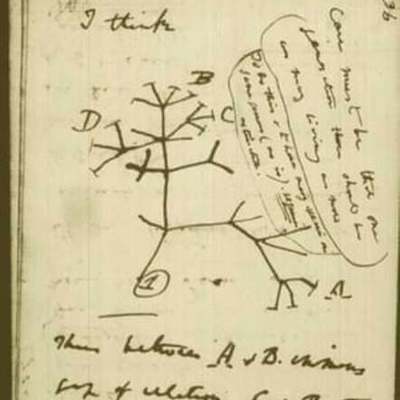 I think
36
B
D
C
Case must be that one
generation then should be
as many living as now
To do this & to have many species in
same genus (as is) requires
extinction.
1
A
Thus between A & B. immens
gap of relation. C &